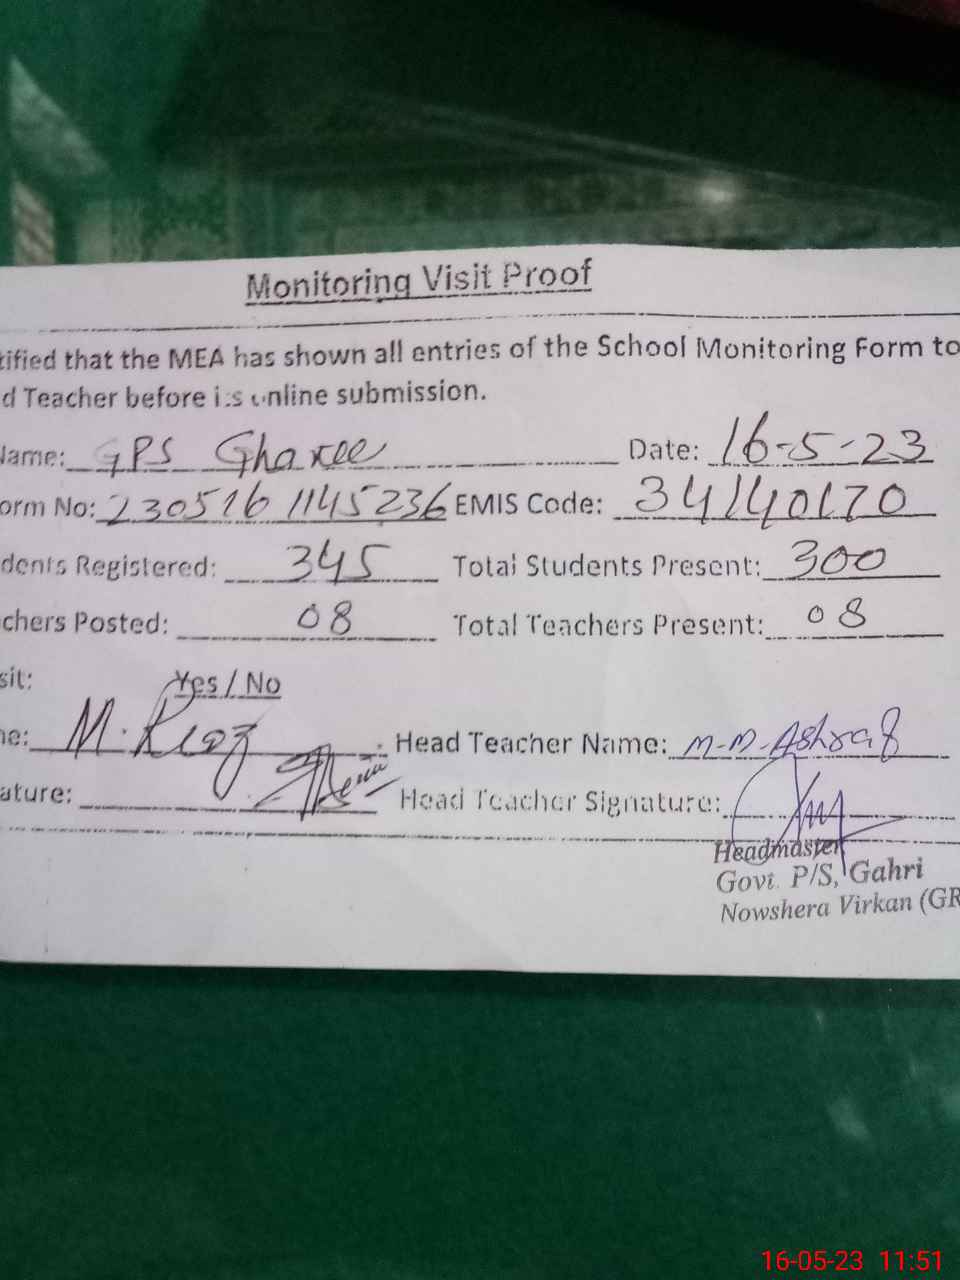 Monitoring Visit Proof
tified that the MEA has shown all entries of the School Monitoring Form to
d Teacher before its online submission.
Name: GPS Gharee Date: 16-5-23
orm No: 230516 1145236 EMIS Code: 34140170
dents Registered: 345 Total Students Present: 300
chers Posted: 08 Total Teachers Present: 08
sit: Yes / No
ne: M. Riaz Head Teacher Name: M-M-Ashraf
ature: Head Teacher Signature:
Headmaster
Govt. P/S, Gahri
Nowshera Virkan (GR
16-05-23 11:51